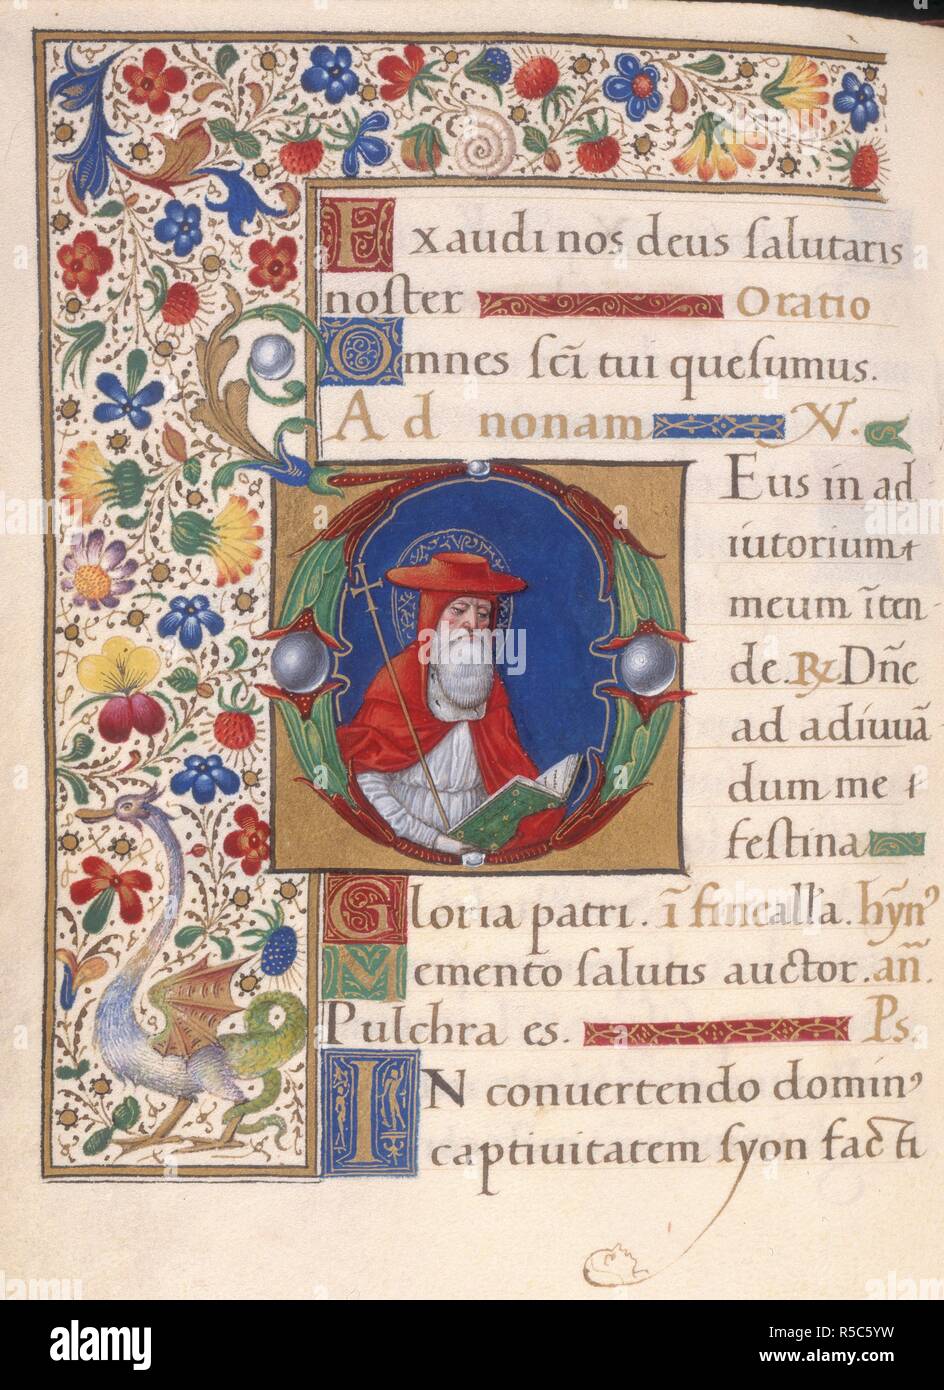 Exaudi nos deus ſalutaris
noſter Oratio
Omnes ſc̄i tui queſumus.
Ad nonam V.
Eus in ad
iutorium
meum īten
de. R Dn̄e
ad adiuuā
dum me
feſtina
Gloria patri. ī fine alľa. hȳn⁹
Memento ſalutis auctor. an̄.
Pulchra es. Ps.
IN conuertendo domin⁹
captiuitatem ſyon facti
alamy
Image ID: R5C5YW
www.alamy.com